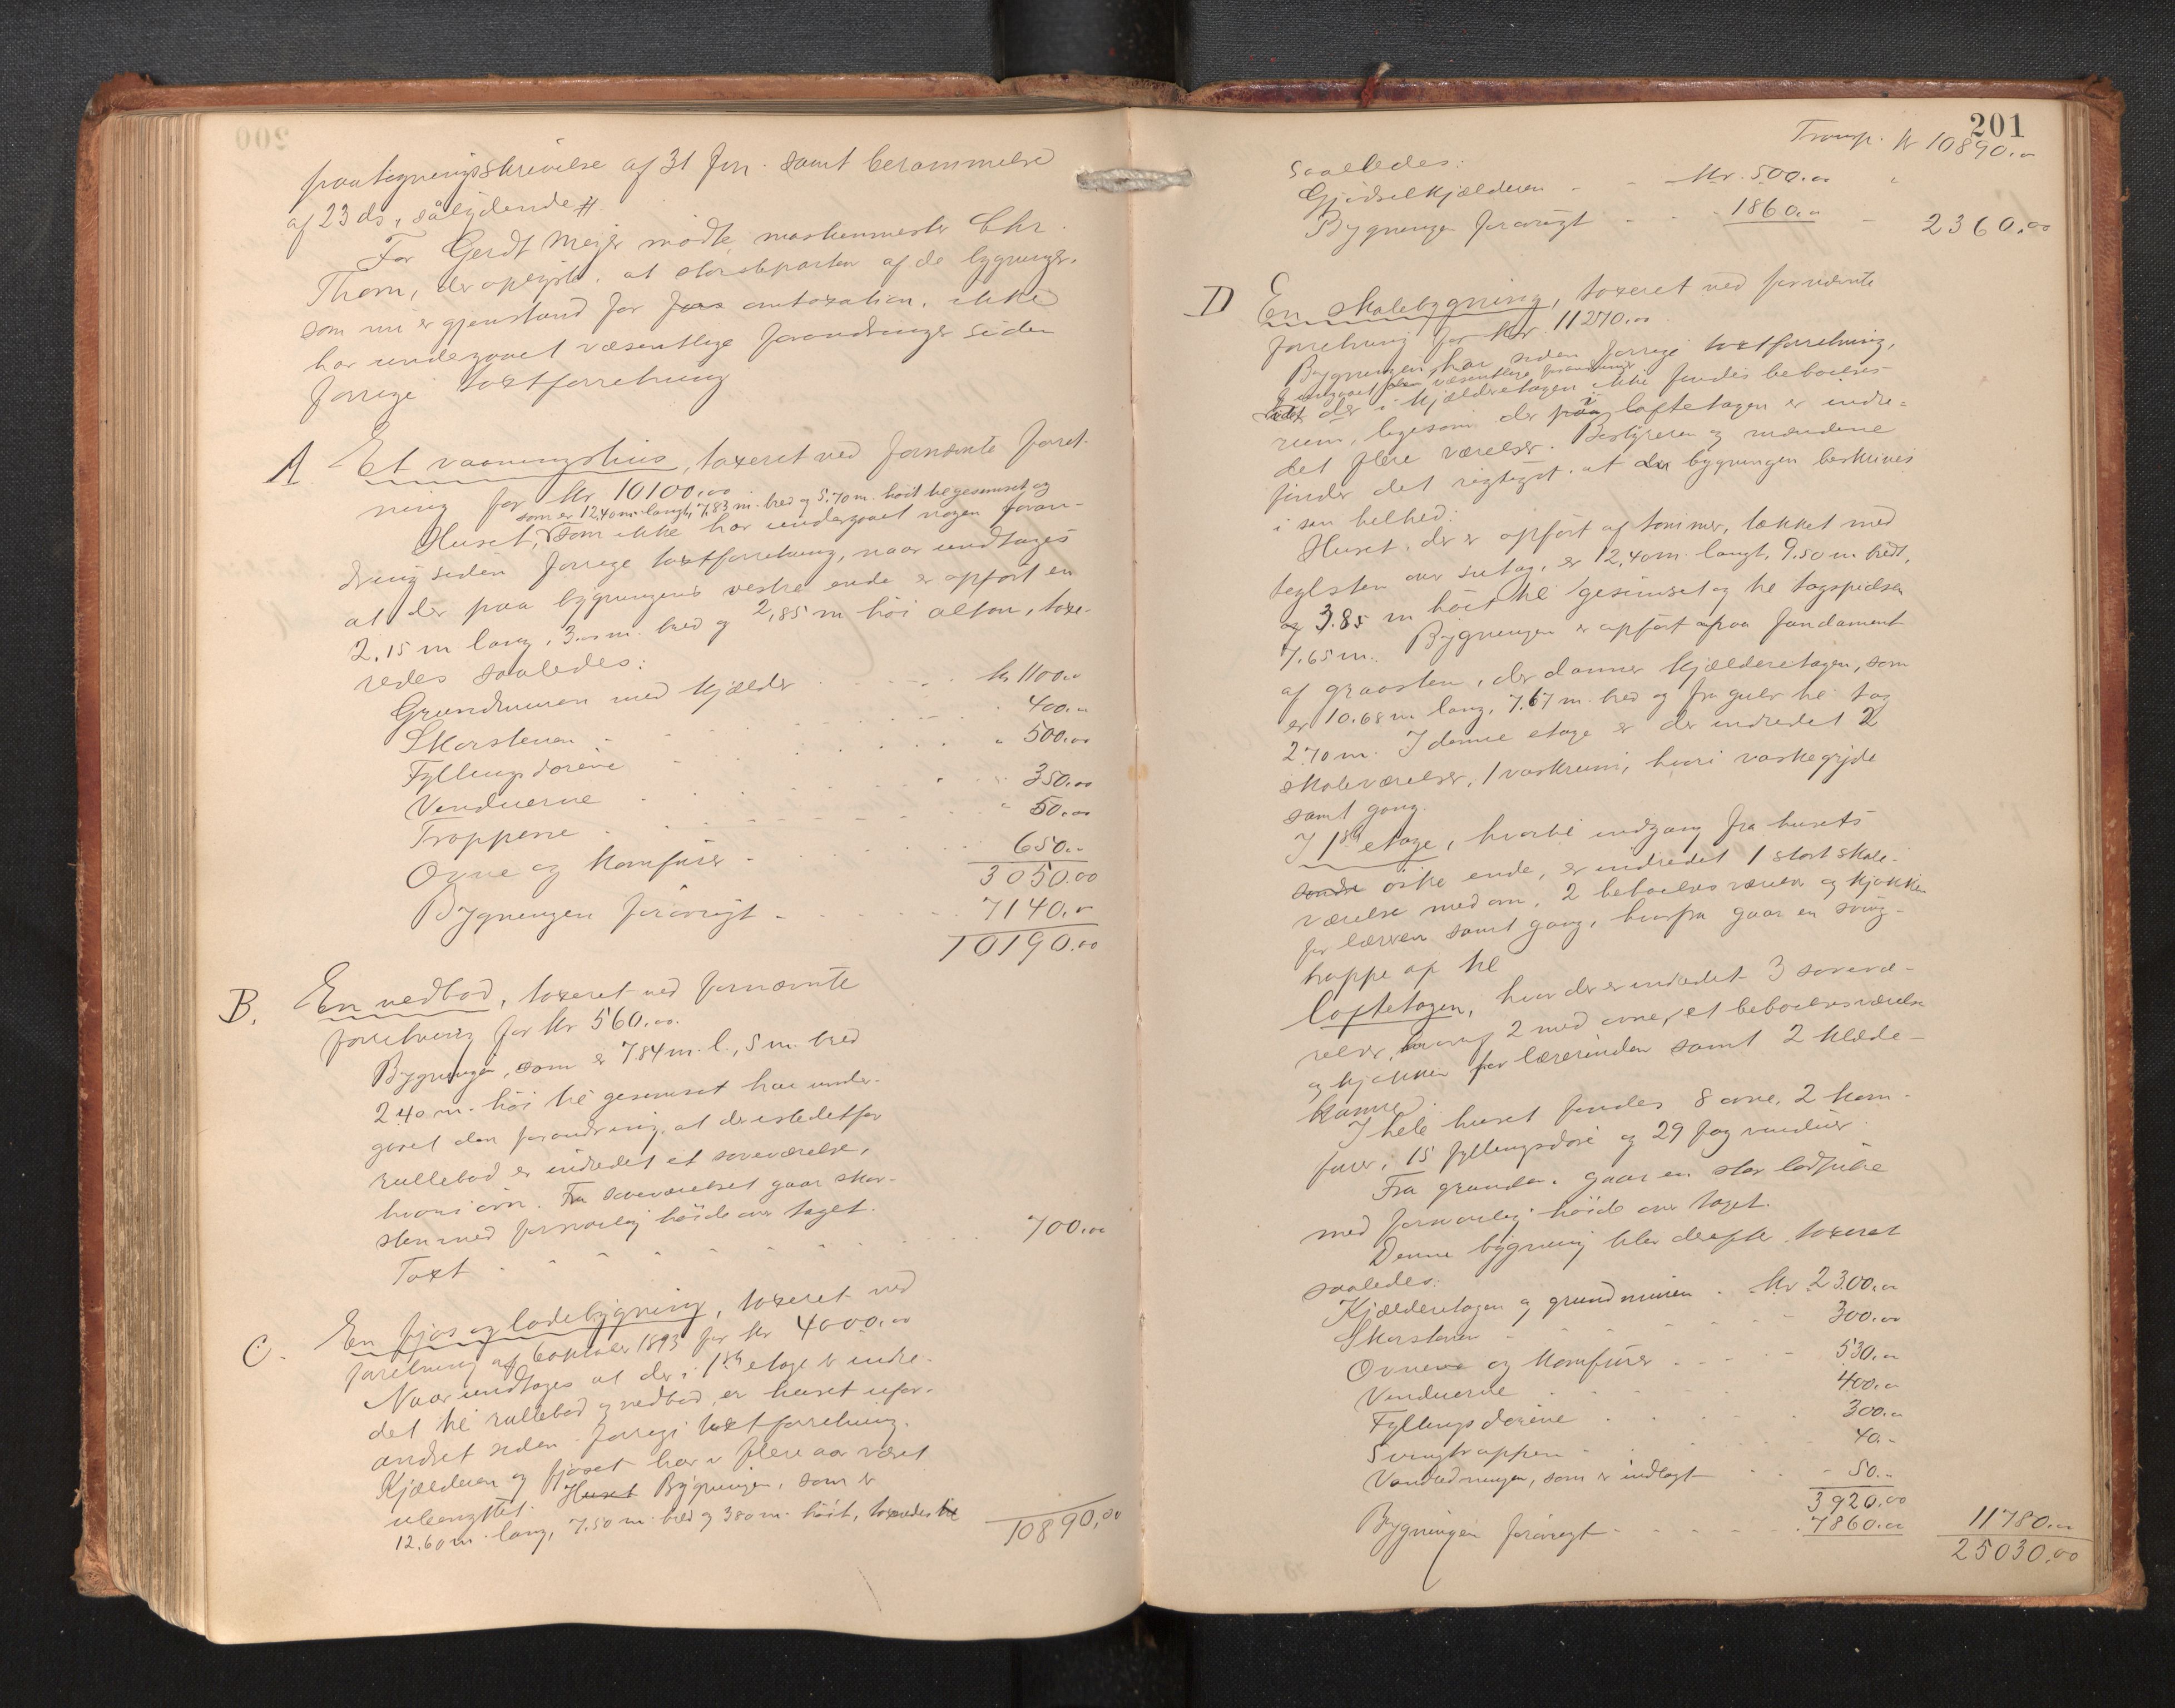 paategningsskrivelse af 31 f.m. samt berammelse
af 23 ds, sålydende #.
For Gerdt Meijer mødte maskinmester Chr.
Thom, der oplyste, at størsteparten af de bygninger,
som nu er gjenstand for fors omtaxation, ikke
har undergaaet væsentlige forandringer siden
forrige taxtforretning
A Et vaaningshus, taxeret ved fornævnte forret-
ning for Kr. 10100.00
som er 12.40 m. langt, 7.83 m. bred og 5.70 m. høit til gesimset og
Huset, som ikke har undergaaet nogen foran-
dring siden forrige taxtforretning, naar undtages
at der paa bygningens vestre ende er opført en
2.15 m lang, 3.00 m. bred og 2,85 m høi altan, taxe-
redes saaledes:
Grundmuren med kjælder kr 1100.00
Skorstenen 400.00
Fyllingsdørene 500.00
Vinduerne 350.00
Trapperne 50.00
Ovne og komfurer 650.00
3050.00
Bygningen forøvrigt 7140.00
10190.00
B. En vedbod, taxeret ved fornævnte
forretning for kr 560.00.
Bygningen, som er 7.84 m. l., 5 m. bred
2.40 m. høi til gesimset har under-
gaaet den forandring, at der istedetfor
rullebod er indredet et soveværelse,
hvori ovn. Fra soveværelset gaar skor-
sten med forsvarlig høide over taget.
Taxt 700.00
C. En fjøs og ladebygning, taxeret ved
forretning af 6 oktober 1893 for kr 4000.00
Naar undtages at der i 1ste etage er indre-
det til rullebod og vedbod, er huset ufor-
andret siden forrige taxtforretning.
Kjælderen og fjøset har i flere aar været
ubenyttet. Huset Bygningen, som er
12.60 m. lang, 7.50 m. bred og 3.80 m. høit, taxeredes til
10890,00
201
Transp. kr 10890.00
saaledes:
Gjødselkjælderen Kr. 500.00
Bygningen forøvrigt 1860.00 2360.00
D En skolebygning, taxeret ved fornævnte
forretning for Kr. 11270.00
Bygningen har siden forrige taxtforretning,
undgaaet den væsentlige forandringer
idet der i kjælderetagen ikke findes beboelses-
rum, ligesom der paa i loftetagen er indre-
det flere værelser. Bestyreren og mændene
finder det rigtigst at den bygningen beskrives
i sin helhed:
Huset, der er opført af tømmer, tækket med
teglsten over sutag, er 12,40 m. langt, 9.50 m. bredt,
og 3.85 m høit til gesimset og til tagspidsen
7.65 m. Bygningen er opført paa fundament
af graasten, der danner kjælderetagen, som
er 10.68 m lang, 7.67 m. bred og fra gulv til tag
2.70 m. I denne etage er der indredet 2
skoleværelser, 1 vaskrum, hvori vaskegryde
samt gang.
I 1ste etage, hvortil indgang fra husets
søndre østre ende, er indredet 1 stort skole-
værelse med ovn, 2 beboelsesværelser og kjøkken
for læreren samt gang, hvorfra gaar en sving-
trappe op til
loftetagen, hvor der er indredet 3 sovevæ-
relser, hvoraf 2 med ovne, et beboelsesværelse
og kjøkken for lærerinden samt 2 klæde-
kamre.
I hele huset findes 8 ovne, 2 kom-
furer, 15 fyllingsdøre og 29 fag vinduer.
Fra grunden gaar en stor lodpibe
med forsvarlig høide over taget.
Denne bygning blev derefter taxeret
saaledes:
Kjælderetagen og grundmuren kr 2300.00
Skorstenen 300.00
Ovnene og komfurer 530.00
Vinduerne 400.00
Fyllingsdørene 300.00
Svingtrappen 40.-
Vandledningen, som er indlagt 50.-
3920.00
Bygningen forøvrigt 7860.00 11780.00
25030.00